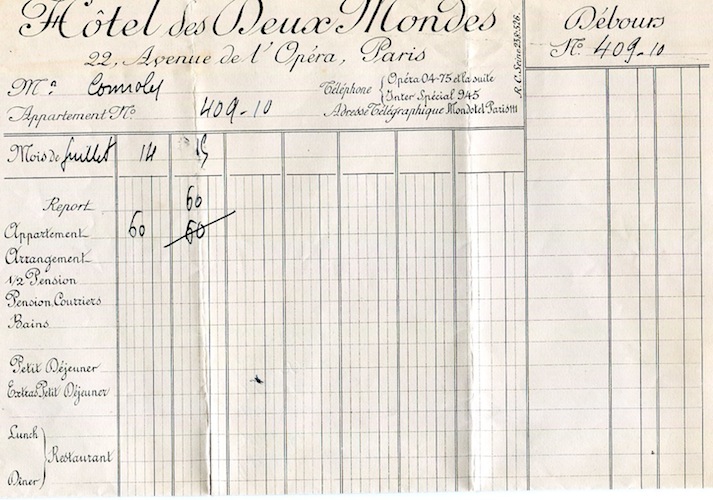 Hôtel des Deux Mondes
22, Avenue de l'Opéra, Paris
Mr Connoly
Téléphone { Opéra 04-75 et la suite
Inter Spécial 945
Appartement No 409-10
Adresse Télégraphique Mondotel Paris 111
R.C. Seine 238.826.
Débours
No. 409-10
Mois de Juillet 14 15
Report 60
Appartement 60 60
Arrangement
1/2 Pension
Pension. Courriers
Bains
Petit Déjeuner
Extras Petit Déjeuner
Lunch
Restaurant
Dîner